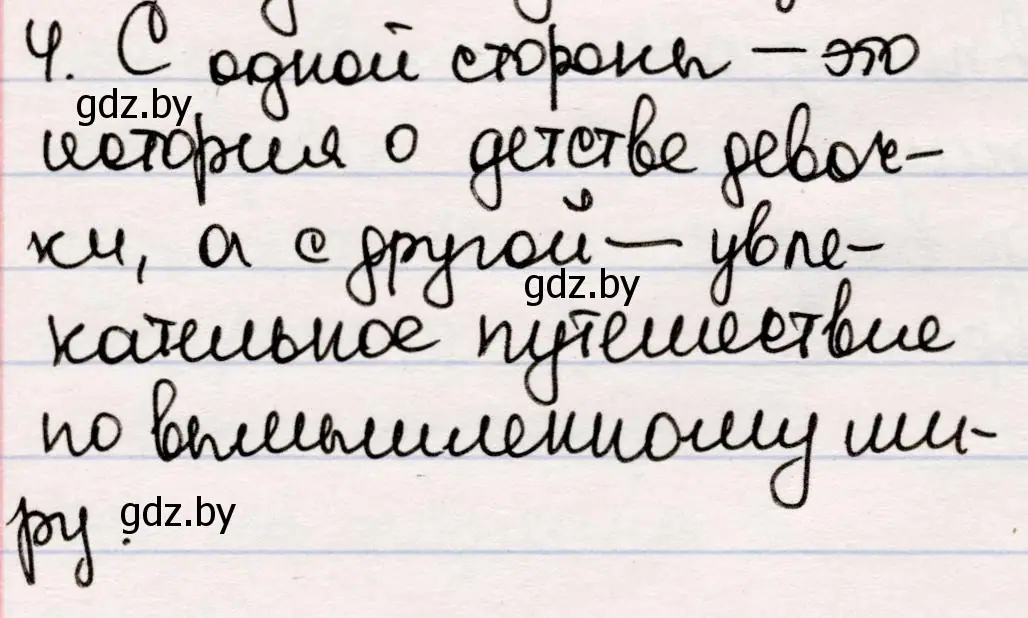 4. С одной стороны — это
gdz.by
история о детстве девоч-
ки, а с другой — увле-
gdz.by
кательное путешествие
по вымышленному ми-
ру.
gdz.by